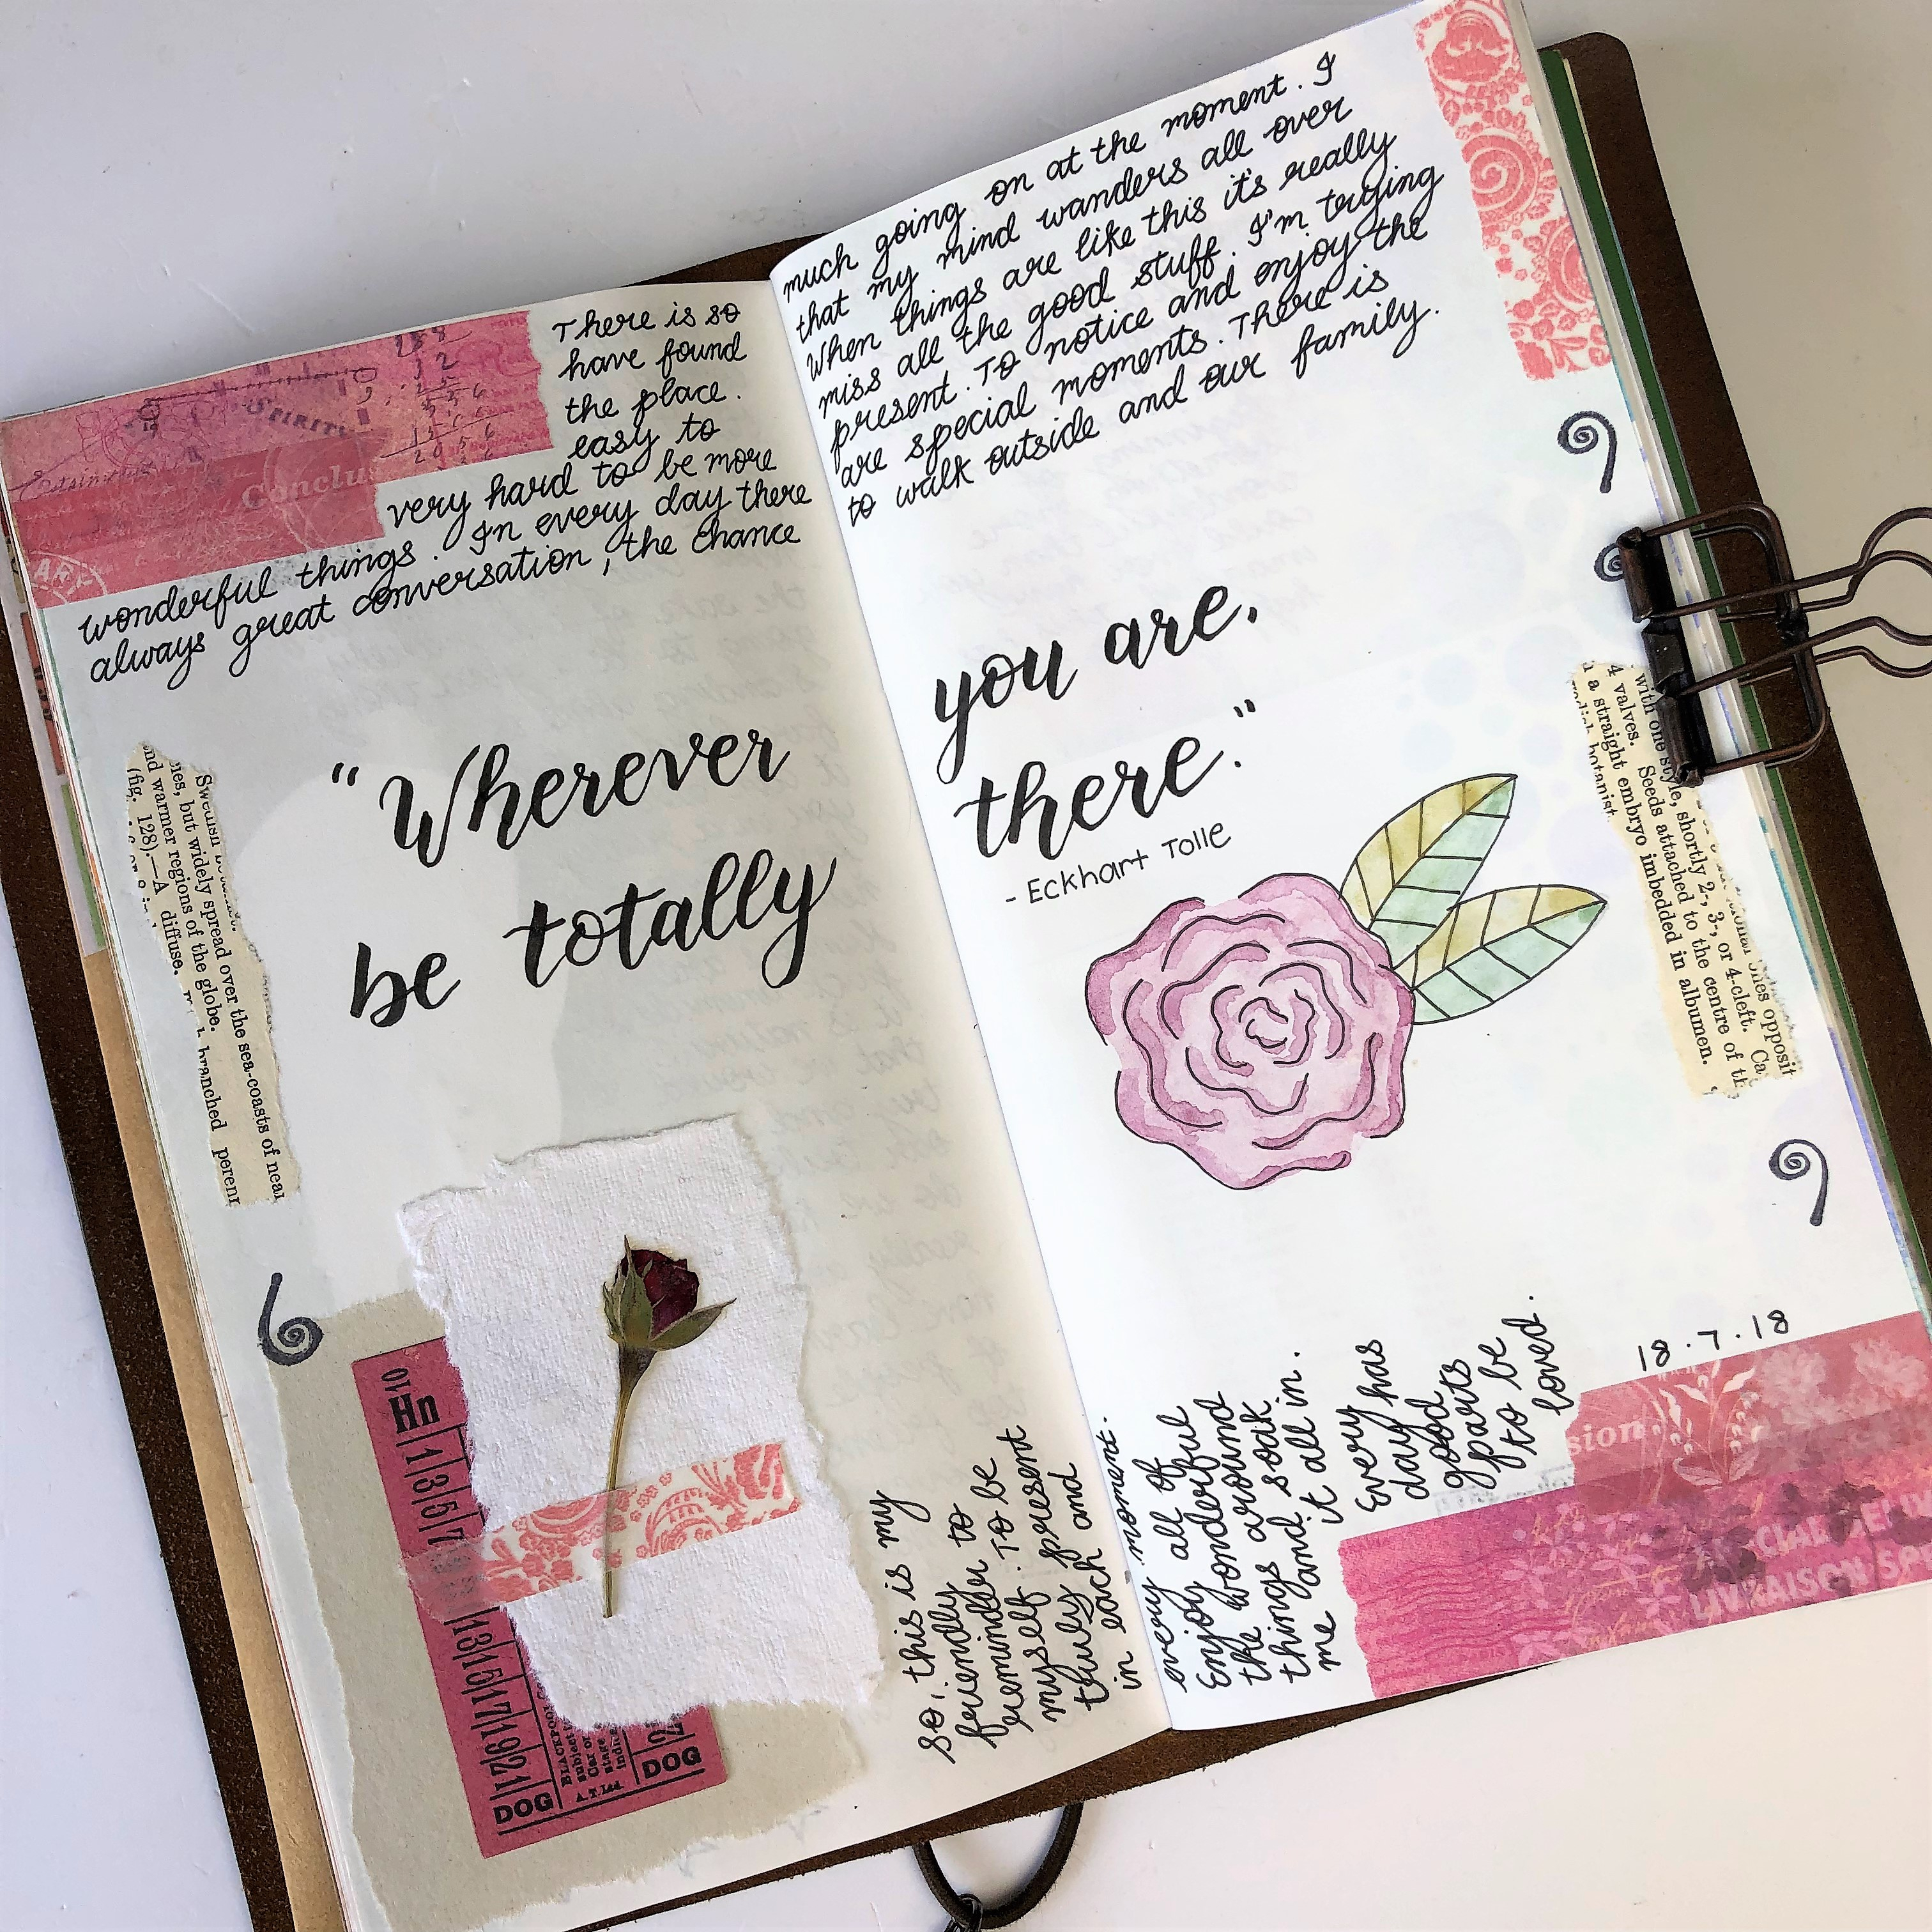 There is so much going on at the moment. I
have found that my mind wanders all over
the place. When things are like this it's really
easy to miss all the good stuff. I'm trying
very hard to be more present. To notice and enjoy the
wonderful things. In every day there are special moments. There is
always great conversation, the chance to walk outside and our family.
"Wherever
be totally
you are,
there."
- Eckhart Tolle
So, this is my
friendly
reminder to
myself. To be
truly present
in each and
every moment.
Enjoy all of
the wonderful
things around
me and soak
it all in.
Every
day has
good
parts
to be
loved.
18.7.18
SPIRITU
Conclu
Swedish
ies, but widely spread over the sea-coasts of near
nd warmer regions of the globe.
(fig. 128).—A diffuse, branched perenn
with one style, shortly 2-, 3-, or 4-cleft. Ca
4 valves. Seeds attached to the centre of th
a straight embryo imbedded in albumen.
botanist.
ones opposit
Hn
10
1|3|5|7
13|15|17|19|21
BLACKPOOL
subject t
Car or
stage
indic
A.T. Ltd.
DOG
DOG
sion
LIVRAISON